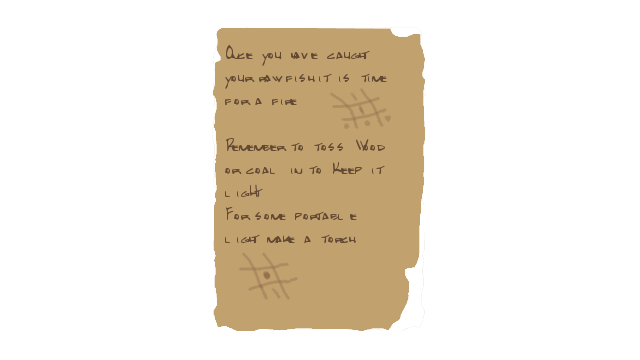 Once you have caught
your raw fish it is time
for a fire
Remember to toss Wood
or coal in to Keep it
light
For some portable
light make a torch